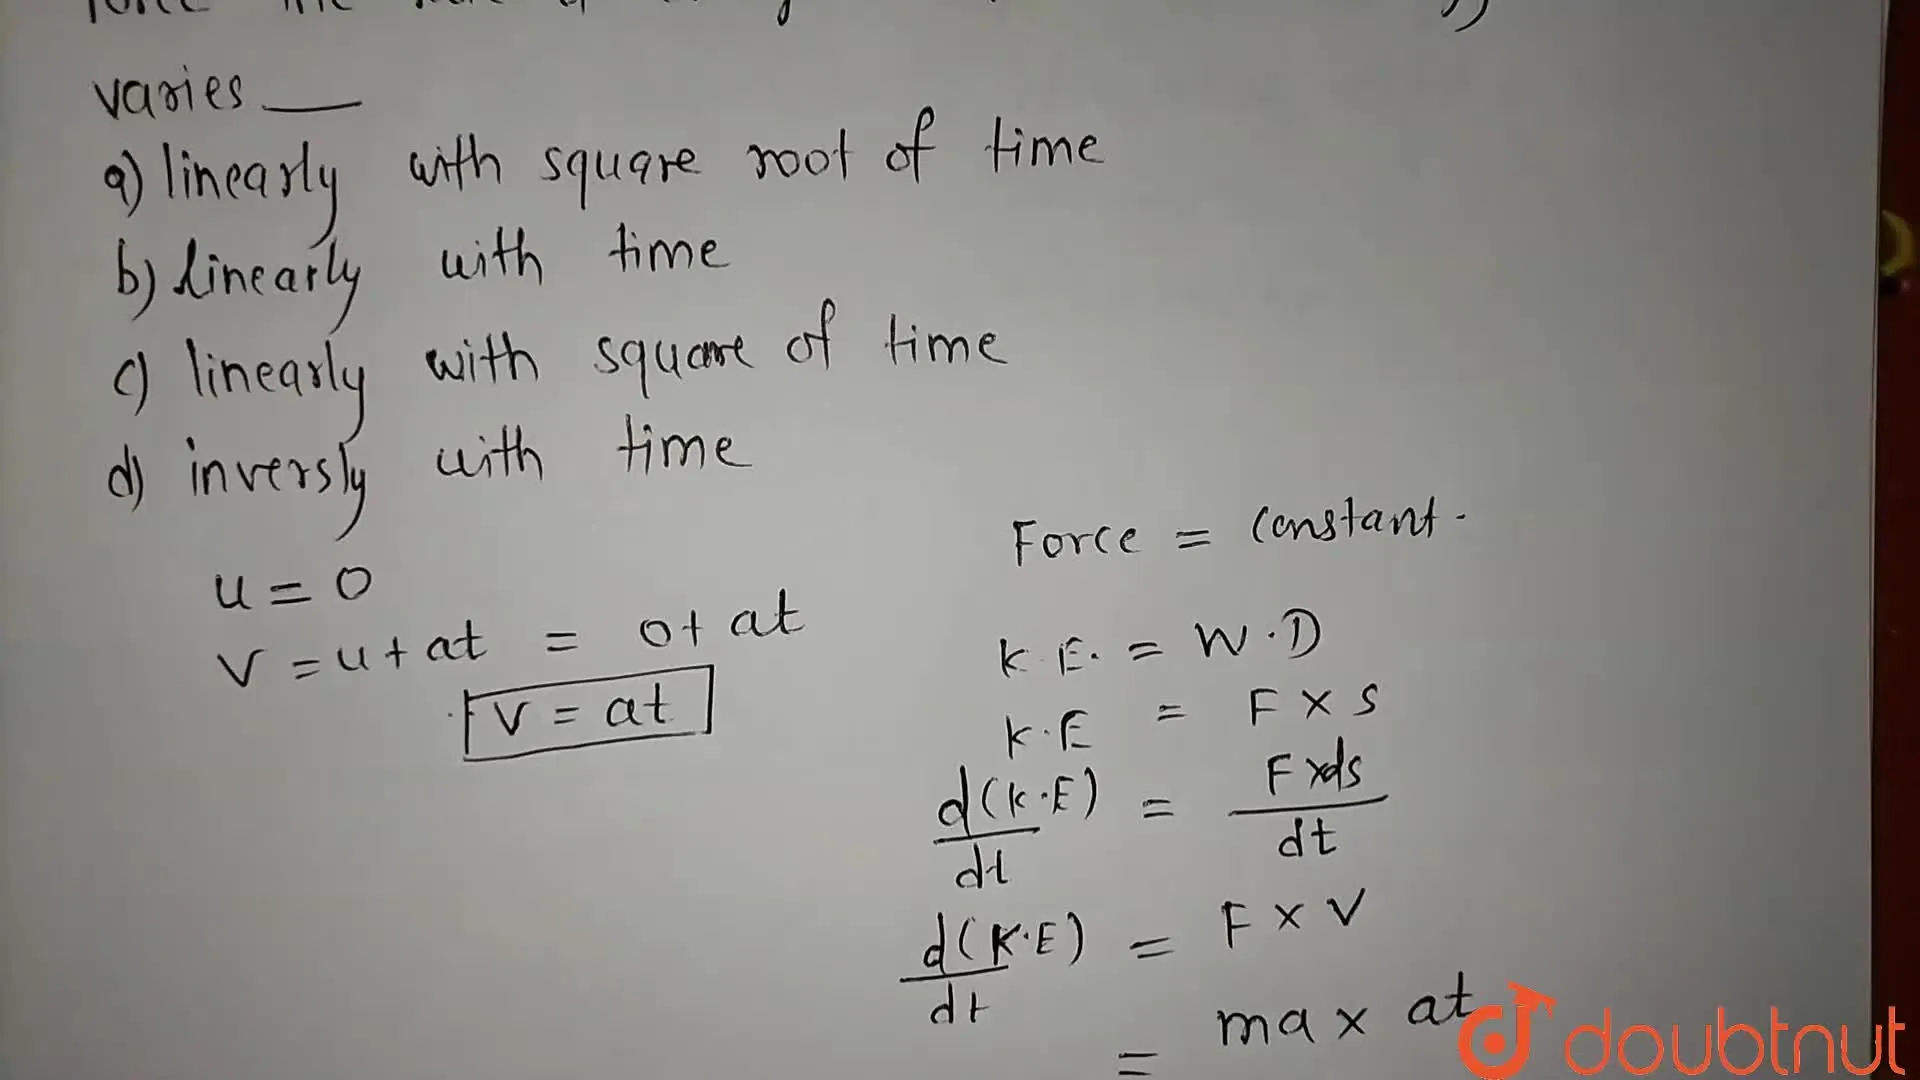 varies ___
a) linearly with square root of time
b) linearly with time
c) linearly with square of time
d) inversly with time
u = 0
v = u + at = 0 + at
v = at
Force = constant.
K.E. = W.D
K.E = F x s
d(K.E)/dt = F x ds/dt
d(K.E)/dt = F x V
= ma x at
doubtnut